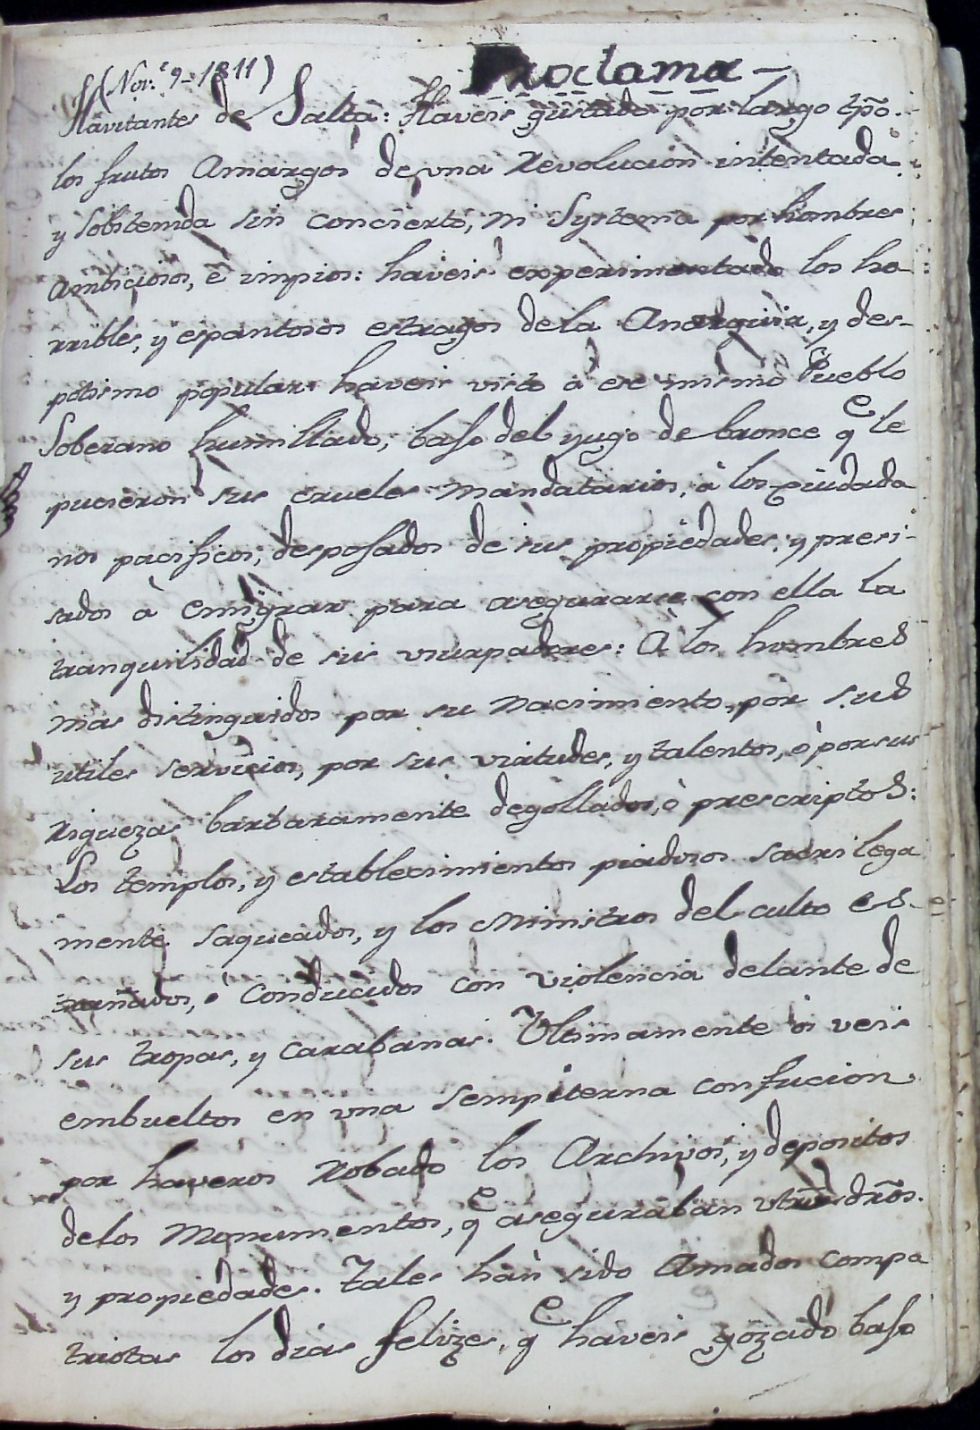 (Nov.e 9-1811)
Proclama-
Havitantes de Salta: Haveis gustado por largo tpõ.
los frutos Amargos de vna Revolucion intentada
y sobstenida sin concierto, ni Systema por hombres
Ambiciosos, è impios: haveis experimentado los ho-
rribles, y espantosos estragos dela Anarquia, y des-
potismo popular: haveis visto à ese mismo Pueblo
Soberano humillado, baxo del yugo de bronce qe le
pucieron sus crueles Mandatarios, à los ciudada
nos pacificos, desposados de sus propiedades, y presi-
sados à emigrar para asegurarse con ella la
tranquilidad de sus vsurpadores: A los hombres
mas distinguidos por su Nacimiento, por sus
utiles servicios, por sus virtudes, y talentos, ò por sus
Riquezas barbaramente degollados, ò prescriptos:
Los templos, y establecimientos piadosos sacrilega
mente saqueados, y los Ministros del culto es-
trañados, ò conducidos con violencia delante de
sus tropas, y carabanas. Ultimamente ôs veis
embueltos en vna sempiterna confucion
por haveros Robado los Archivos, y depositos
delos Monumentos, qe aseguraban vtrõs drõs.
y propiedades. Tales hàn sido Amados compa
triotas los dias felizes, qe haveis gozado baxo